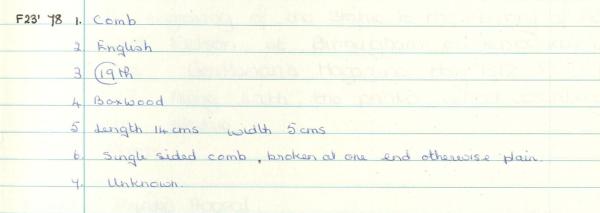 F23' 78 1. Comb
2 English
3 C19th
4 Boxwood
5 Length 14cms width 5cms
6. Single sided comb, broken at one end otherwise plain.
7. Unknown.